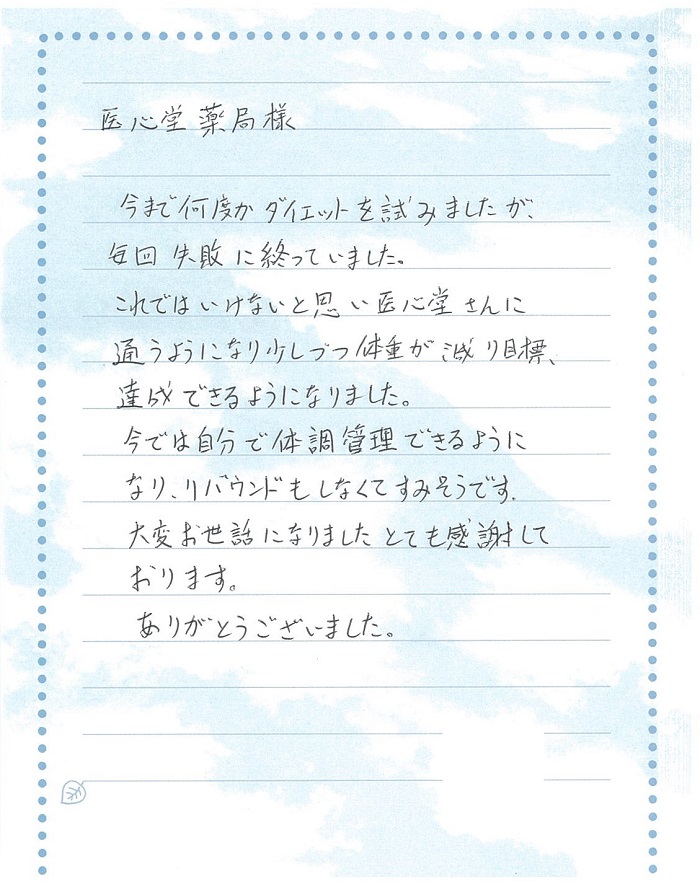 医心堂薬局様
今まで何度かダイエットを試みましたが、
毎回失敗に終っていました。
これではいけないと思い医心堂さんに
通うようになり少しづつ体重が減り目標、
達成できるようになりました。
今では自分で体調管理できるように
なり、リバウンドもしなくてすみそうです.
大変お世話になりましたとても感謝して
おります。
ありがとうございました。